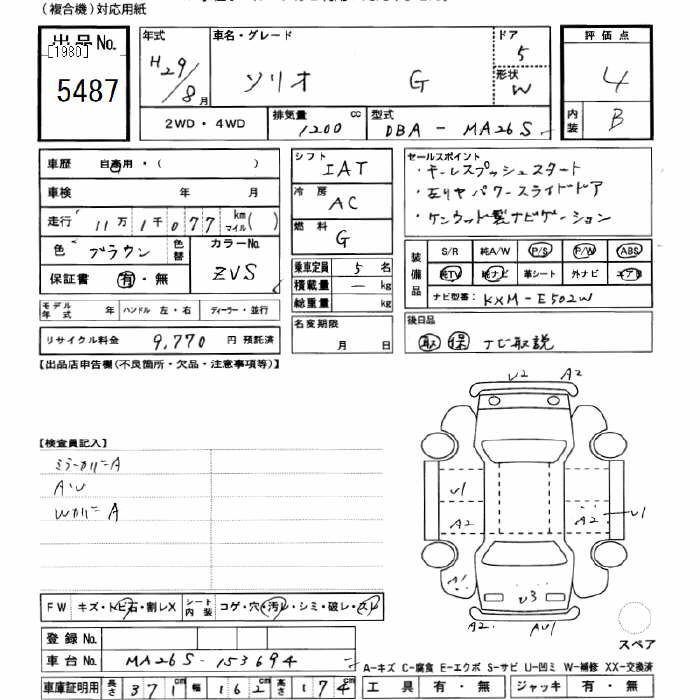 (複合機)対応用紙
出品No.
[1980]
5487
年式
H29/8月
車名・グレード
ソリオ G
ドア
5
形状
W
評価点
4
内装
B
2WD・4WD
排気量 1200 cc
型式 DBA - MA26S
車歴 自家用・( )
車検 年 月
走行 11万1千077 km マイル( )
色 ブラウン 色替
カラーNo. ZVS
保証書 有・無
モデル年式 年 ハンドル 左・右 ディーラー・並行
リサイクル料金 9,770 円 預託済
シフト IAT
冷房 AC
燃料 G
乗車定員 5 名
積載量 — kg
総重量 kg
名変期限
月 日
セールスポイント
・キーレスプッシュスタート
・左リヤパワースライドドア
・ケンウッド製ナビゲーション
装備品
S/R 純A/W P/S P/W ABS
純TV 純ナビ 革シート 外ナビ エアB
ナビ型番: KXM-E502W
後日品
取 保 ナビ取説
【出品店申告欄(不良箇所・欠品・注意事項等)】
【検査員記入】
ミラーカバーA
A・U
WカバーA
U2 A2
U1
A2 A2 U1
A1
U3
A2 AU1
スペア
FW キズ・トビ石・割レX
シート内装 コゲ・穴・汚レ・シミ・破レ・スレ
登録No.
車台No. MA26S-153694
A-キズ C-腐食 E-エクボ S-サビ U-凹ミ W-補修 XX-交換済
車庫証明用 長さ 371cm 幅 162cm 高さ 174cm
工具 有・無 ジャッキ 有・無